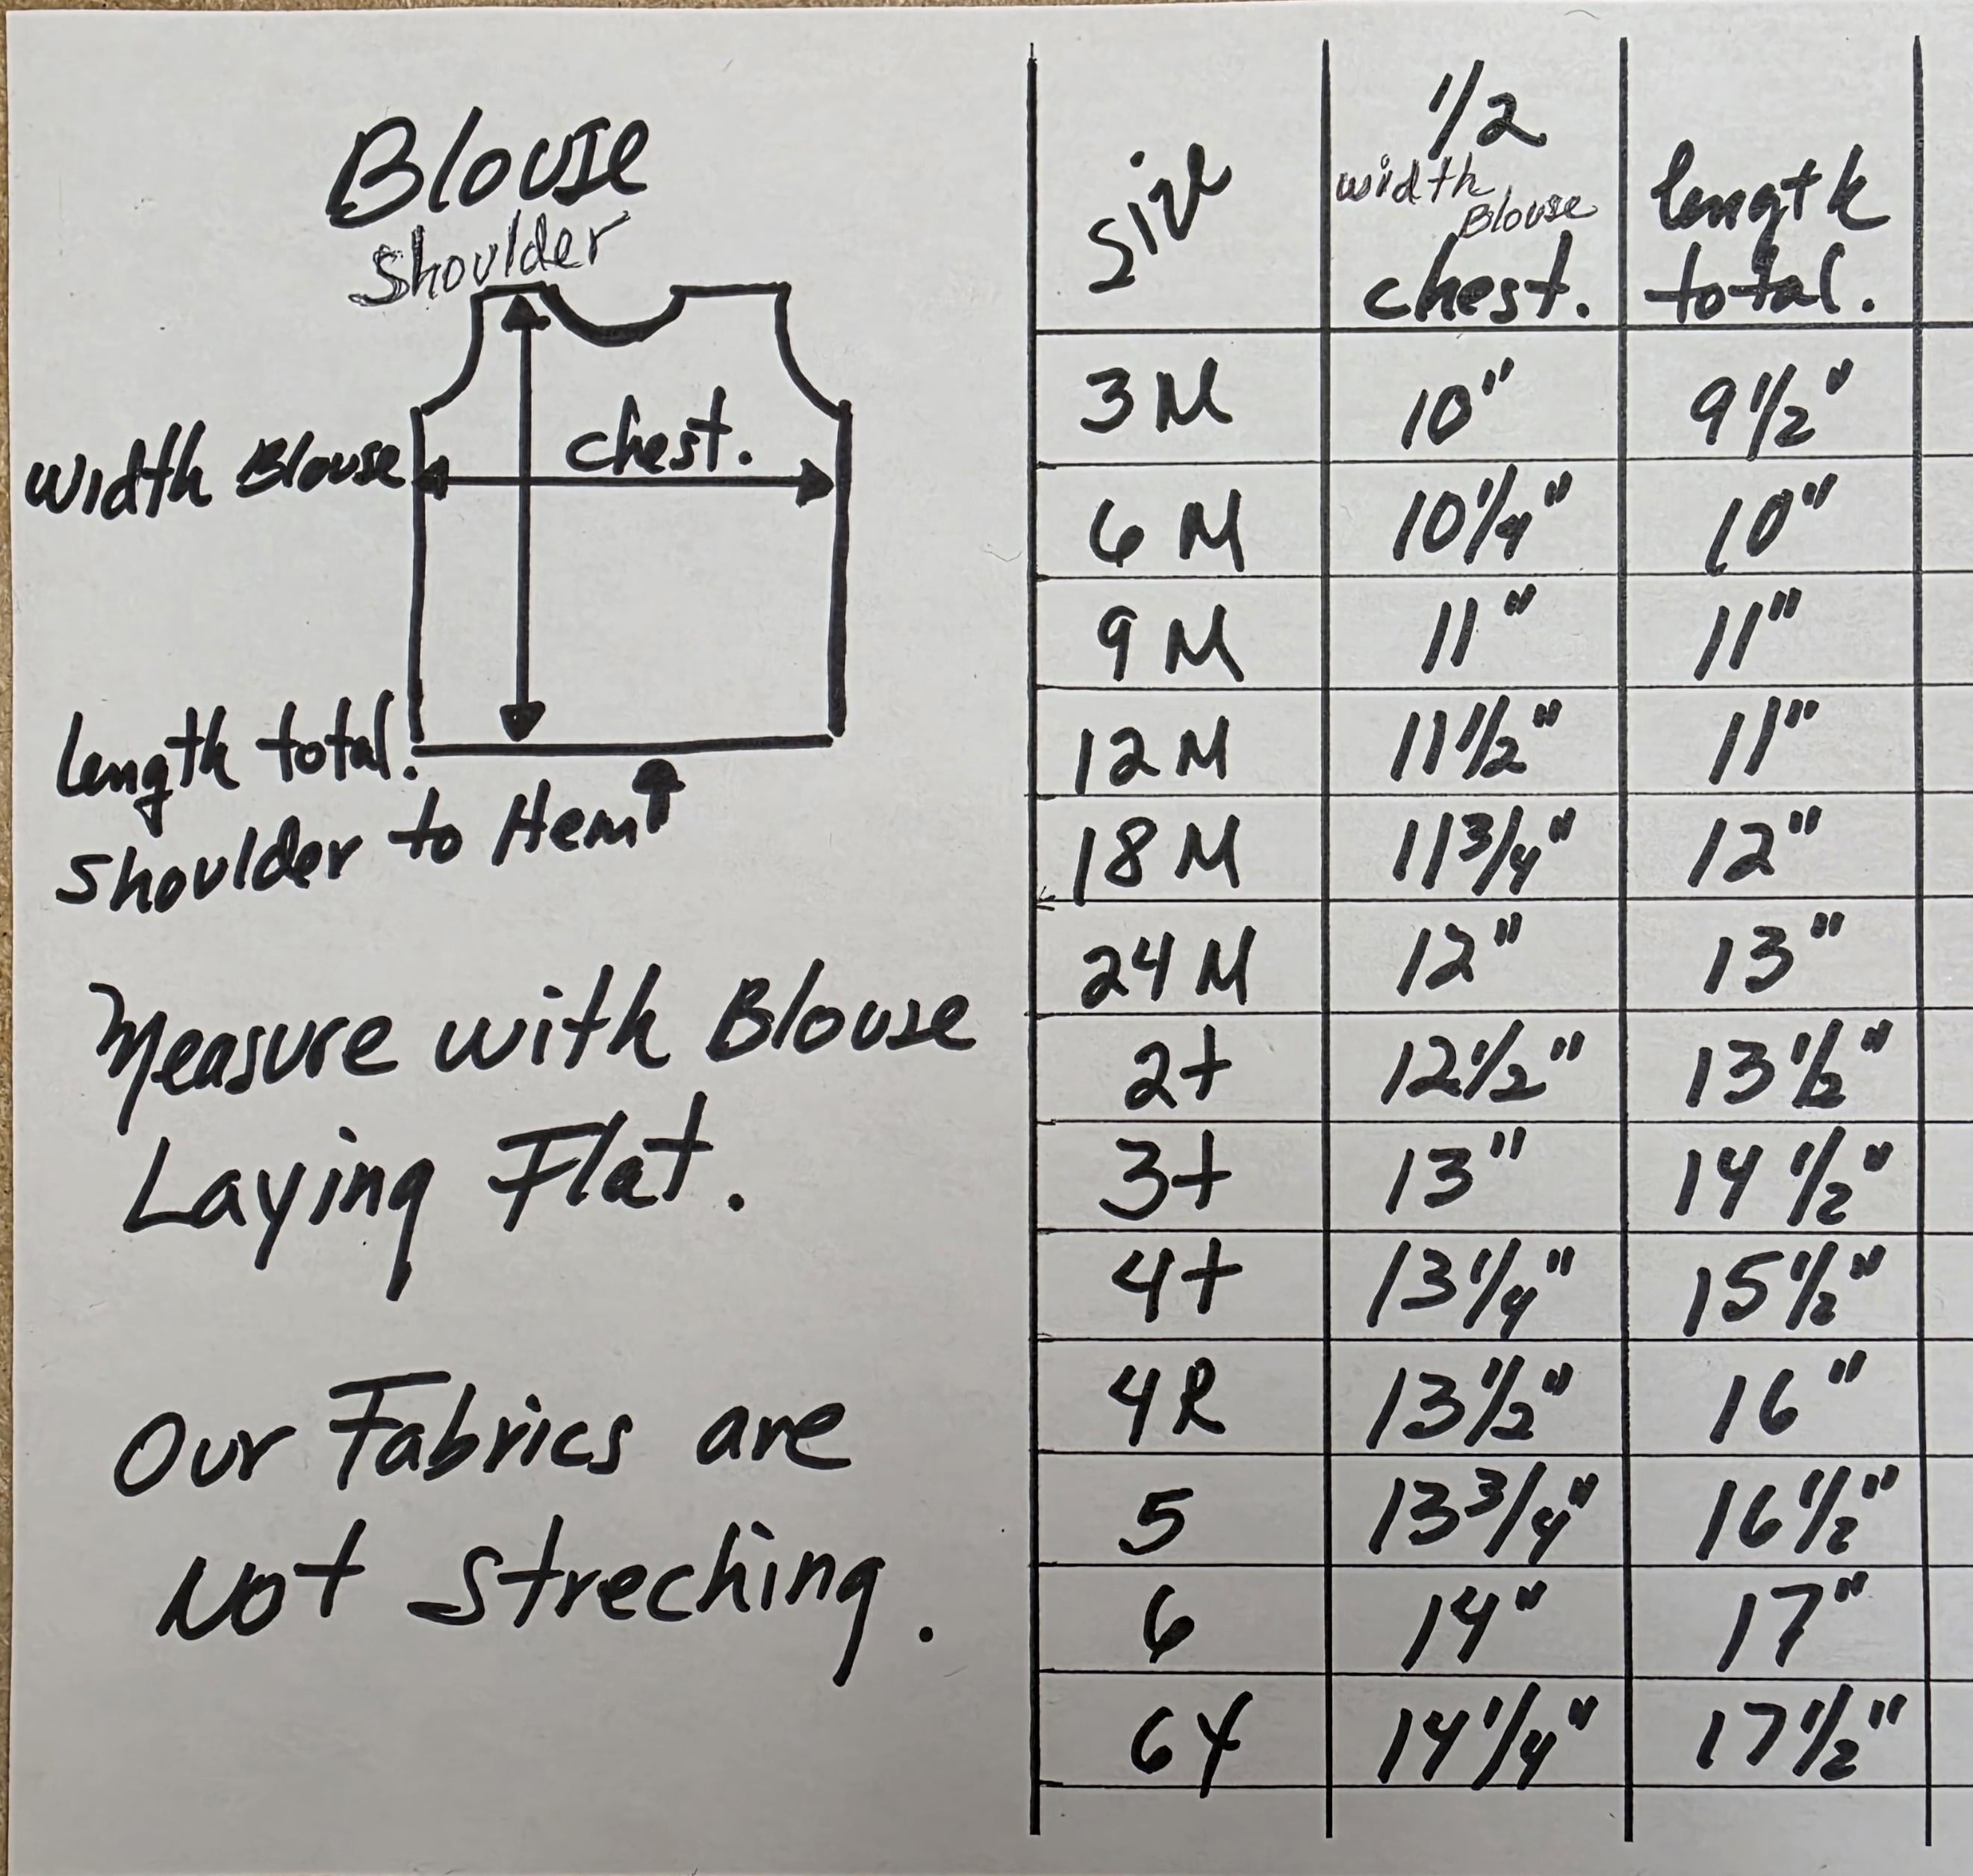 Blouse
Shoulder
chest.
Width Blouse
length total.
Shoulder to Hem
Measure with Blouse
Laying Flat.
Our Fabrics are
Not Streching.
Size
1/2
width
Blouse
chest.
length
total.
3M 10" 9 1/2"
6 M 10 1/4" 10"
9 M 11" 11"
12 M 11 1/2" 11"
18 M 11 3/4" 12"
24 M 12" 13"
2t 12 1/2" 13 1/2"
3t 13" 14 1/2"
4t 13 1/4" 15 1/2"
4R 13 1/2" 16"
5 13 3/4" 16 1/2"
6 14" 17"
6Y 14 1/4" 17 1/2"